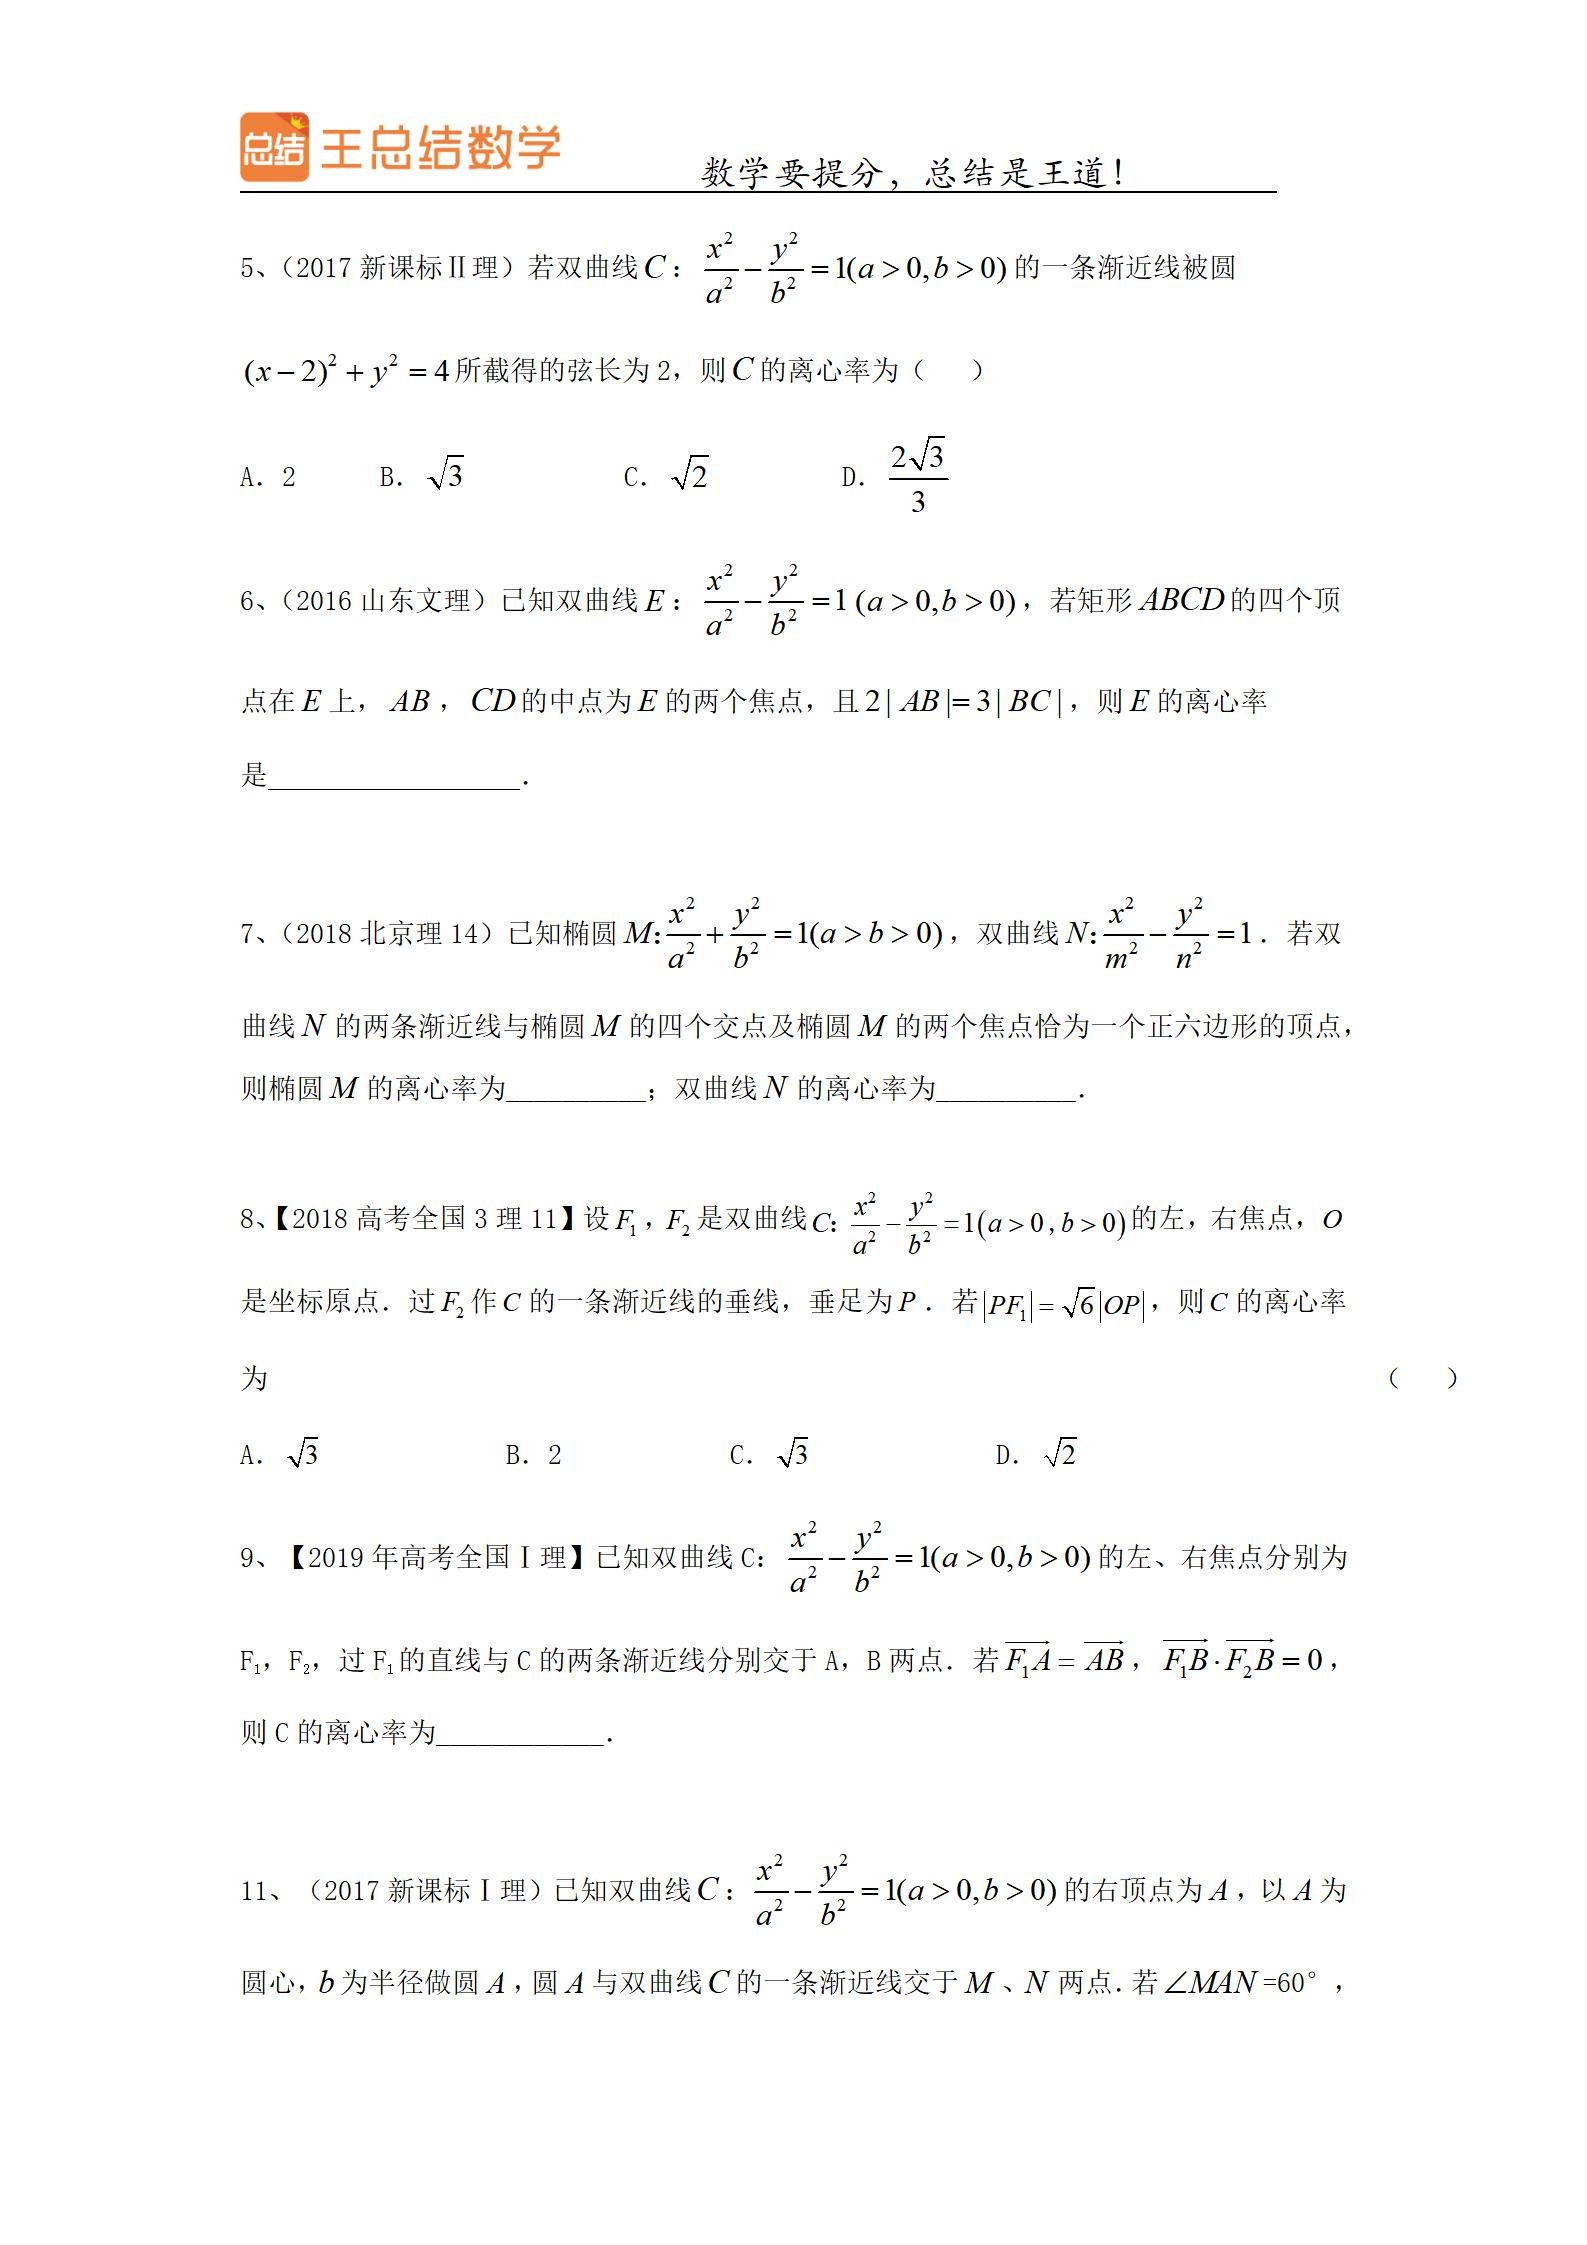 总结 王总结数学 数学要提分，总结是王道！
5、（2017 新课标Ⅱ理）若双曲线 C：x²/a² − y²/b² = 1(a > 0, b > 0) 的一条渐近线被圆
(x − 2)² + y² = 4 所截得的弦长为 2，则 C 的离心率为（ ）
A．2 B．√3 C．√2 D．2√3/3
6、（2016 山东文理）已知双曲线 E：x²/a² − y²/b² = 1 (a > 0, b > 0)，若矩形 ABCD 的四个顶
点在 E 上，AB，CD 的中点为 E 的两个焦点，且 2| AB |= 3| BC |，则 E 的离心率
是__________________．
7、（2018 北京理 14）已知椭圆 M：x²/a² + y²/b² = 1(a > b > 0)，双曲线 N：x²/m² − y²/n² = 1．若双
曲线 N 的两条渐近线与椭圆 M 的四个交点及椭圆 M 的两个焦点恰为一个正六边形的顶点，
则椭圆 M 的离心率为__________；双曲线 N 的离心率为__________．
8、【2018 高考全国 3 理 11】设 F₁，F₂ 是双曲线 C：x²/a² − y²/b² = 1(a > 0, b > 0) 的左，右焦点，O
是坐标原点．过 F₂ 作 C 的一条渐近线的垂线，垂足为 P．若 |PF₁| = √6|OP|，则 C 的离心率
为 （ ）
A．√3 B．2 C．√3 D．√2
9、【2019 年高考全国Ⅰ理】已知双曲线 C：x²/a² − y²/b² = 1(a > 0, b > 0) 的左、右焦点分别为
F₁，F₂，过 F₁ 的直线与 C 的两条渐近线分别交于 A，B 两点．若 →F₁A = →AB，→F₁B · →F₂B = 0，
则 C 的离心率为____________．
11、（2017 新课标Ⅰ理）已知双曲线 C：x²/a² − y²/b² = 1(a > 0, b > 0) 的右顶点为 A，以 A 为
圆心，b 为半径做圆 A，圆 A 与双曲线 C 的一条渐近线交于 M、N 两点．若 ∠MAN =60°，